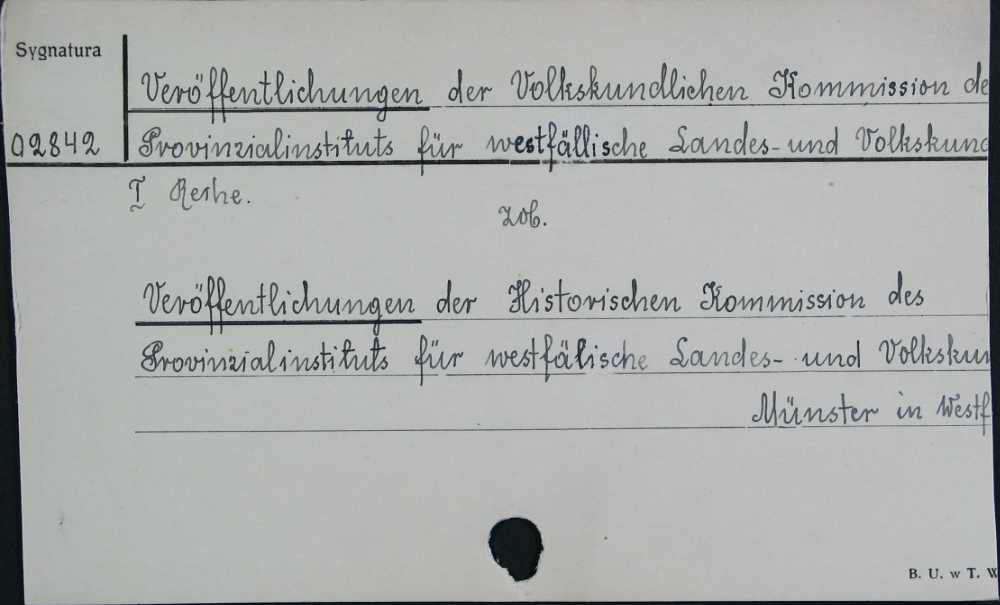 Sygnatura
Veröffentlichungen der Volkskundlichen Kommission de
02842
Provinzialinstituts für westfällische Landes- und Volkskund
I Reihe.
zob.
Veröffentlichungen der Historischen Kommission des
Provinzialinstituts für westfälische Landes- und Volkskun
Münster in Westf
B. U. w T. W